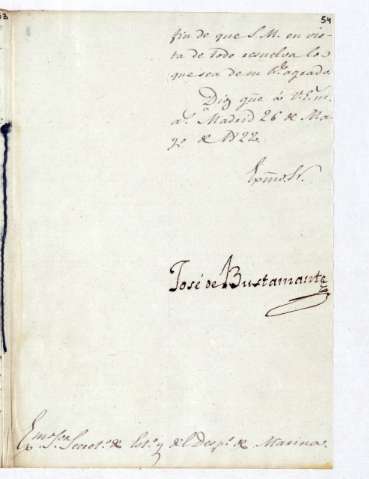 54
fin de que S.M. en vis-
ta de todo resuelva lo
que sea de su Rl. agrado.
Dios gũe á V.E. m.
a.s Madrid 26 de Ma-
yo de 1822.
Exmo. Sr.
José de Bustamante
Exmo. Sor. Secret.o de Est.o y del Desp.o de Marina.